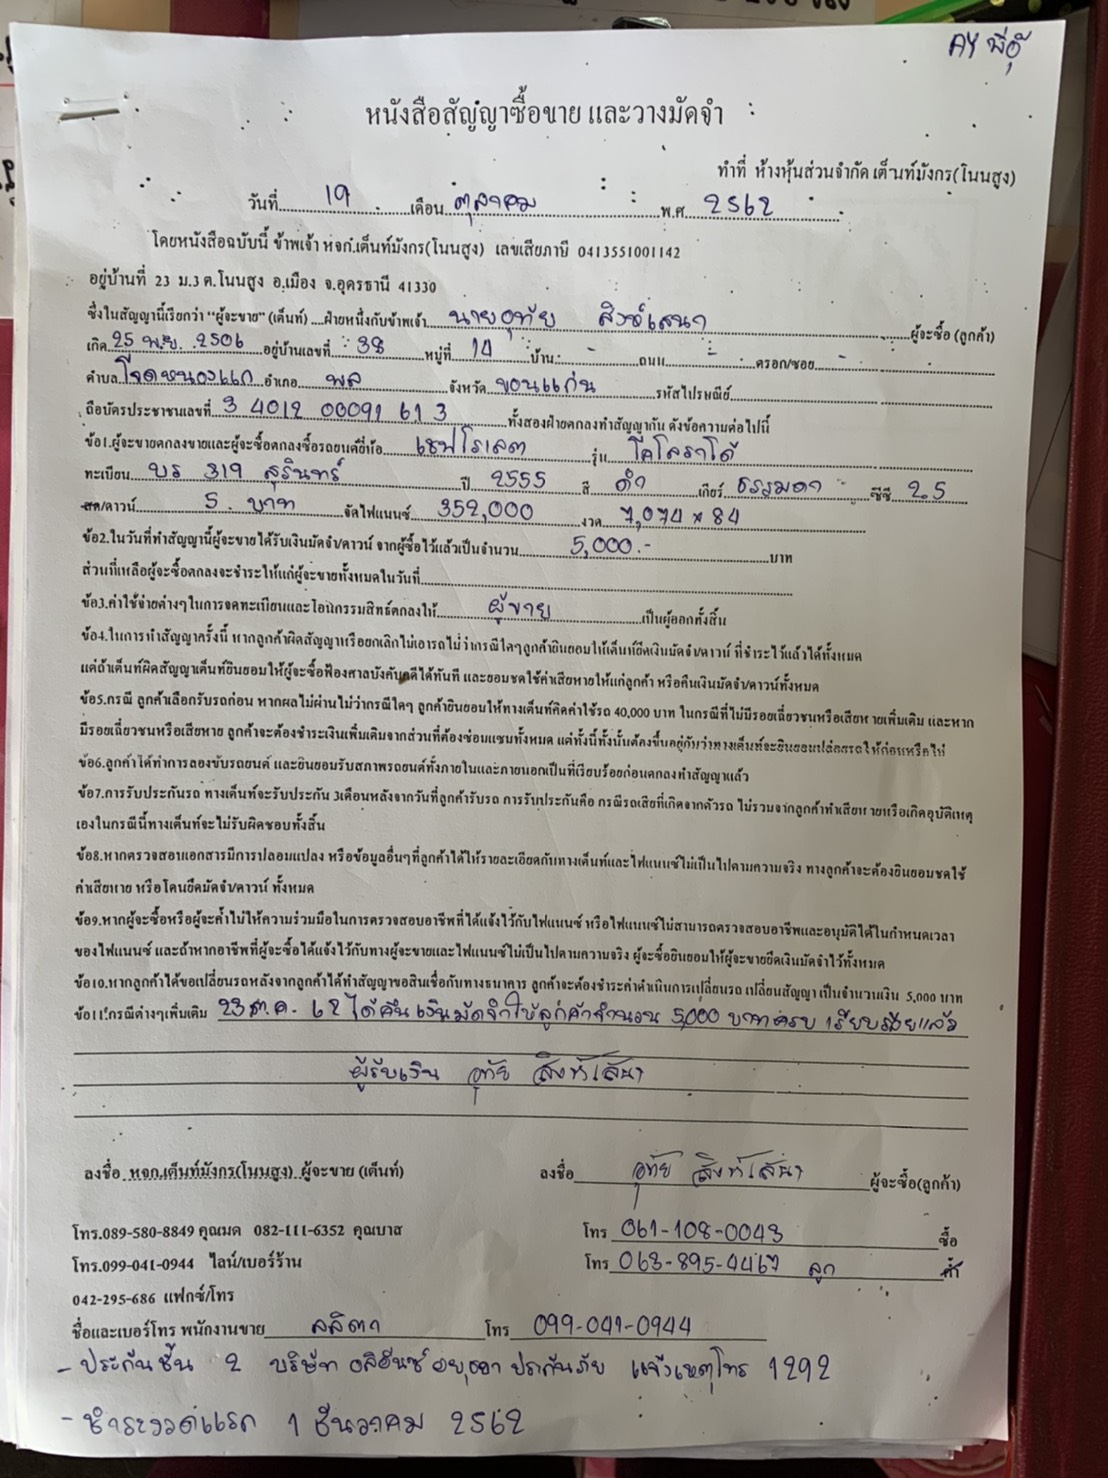 AY พี่อุ้
หนังสือสัญญาซื้อขาย และวางมัดจำ
ทำที่ ห้างหุ้นส่วนจำกัด เต็นท์มังกร(โนนสูง)
วันที่ 19 เดือน ตุลาคม พ.ศ 2562
โดยหนังสือฉบับนี้ ข้าพเจ้า หจก.เต็นท์มังกร(โนนสูง) เลขเสียภาษี 0413551001142
อยู่บ้านที่ 23 ม.3 ต.โนนสูง อ.เมือง จ.อุดรธานี 41330
ซึ่งในสัญญานี้เรียกว่า "ผู้จะขาย" (เต็นท์) ....ฝ่ายหนึ่งกับข้าพเจ้า นายอุทัย สิงห์เสนา ผู้จะซื้อ (ลูกค้า)
เกิด 25 พ.ย. 2506 อยู่บ้านเลขที่ 38 หมู่ที่ 14 บ้าน ถนน ตรอก/ซอย
ตำบล โจดหนองแก อำเภอ พล จังหวัด ขอนแก่น รหัสไปรษณีย์
ถือบัตรประชาชนเลขที่ 3 4012 00091 61 3 ทั้งสองฝ่ายตกลงทำสัญญากัน ดังข้อความต่อไปนี้
ข้อ1.ผู้จะขายตกลงขายและผู้จะซื้อตกลงซื้อรถยนต์ยี่ห้อ เชฟโรเลต รุ่น โคโลราโด้
ทะเบียน บร 319 สุรินทร์ ปี 2555 สี ดำ เกียร์ ธรรมดา ซีซี 2.5
สด/ดาวน์ 5. บาท จัดไฟแนนซ์ 352,000 งวด 7,074 x 84
ข้อ2.ในวันที่ทำสัญญานี้ผู้จะขายได้รับเงินมัดจำ/ดาวน์ จากผู้ซื้อไว้แล้วเป็นจำนวน 5,000.- บาท
ส่วนที่เหลือผู้จะซื้อตกลงจะชำระให้แก่ผู้จะขายทั้งหมดในวันที่
ข้อ3.ค่าใช้จ่ายต่างๆในการจดทะเบียนและโอนกรรมสิทธิ์ตกลงให้ ผู้ขาย เป็นผู้ออกทั้งสิ้น
ข้อ4.ในการทำสัญญาครั้งนี้ หากลูกค้าผิดสัญญาหรือยกเลิกไม่เอารถไม่ว่ากรณีใดๆลูกค้ายินยอมให้เต็นท์ยึดเงินมัดจำ/ดาวน์ ที่ชำระไว้แล้วได้ทั้งหมด
แต่ถ้าเต็นท์ผิดสัญญาเต็นท์ยินยอมให้ผู้จะซื้อฟ้องศาลบังคับคดีได้ทันที และยอมชดใช้ค่าเสียหายให้แก่ลูกค้า หรือคืนเงินมัดจำ/ดาวน์ทั้งหมด
ข้อ5.กรณี ลูกค้าเลือกรับรถก่อน หากผลไม่ผ่านไม่ว่ากรณีใดๆ ลูกค้ายินยอมให้ทางเต็นท์คิดค่าใช้รถ 40,000 บาท ในกรณีที่ไม่มีรอยเฉี่ยวชนหรือเสียหายเพิ่มเติม และหาก
มีรอยเฉี่ยวชนหรือเสียหาย ลูกค้าจะต้องชำระเงินเพิ่มเติมจากส่วนที่ต้องซ่อมแซมทั้งหมด แต่ทั้งนี้ทั้งนั้นต้องขึ้นอยู่กับว่าทางเต็นท์จะยินยอมปล่อยรถให้ก่อนหรือไม่
ข้อ6.ลูกค้าได้ทำการลองขับรถยนต์ และยินยอมรับสภาพรถยนต์ทั้งภายในและภายนอกเป็นที่เรียบร้อยก่อนตกลงทำสัญญาแล้ว
ข้อ7.การรับประกันรถ ทางเต็นท์จะรับประกัน 3เดือนหลังจากวันที่ลูกค้ารับรถ การรับประกันคือ กรณีรถเสียที่เกิดจากตัวรถ ไม่รวมจากลูกค้าทำเสียหายหรือเกิดอุบัติเหตุ
เองในกรณีนี้ทางเต็นท์จะไม่รับผิดชอบทั้งสิ้น
ข้อ8.หากตรวจสอบเอกสารมีการปลอมแปลง หรือข้อมูลอื่นๆที่ลูกค้าได้ให้รายละเอียดกับทางเต็นท์และไฟแนนซ์ไม่เป็นไปตามความจริง ทางลูกค้าจะต้องยินยอมชดใช้
ค่าเสียหาย หรือโดนยึดมัดจำ/ดาวน์ ทั้งหมด
ข้อ9.หากผู้จะซื้อหรือผู้จะค้ำไม่ให้ความร่วมมือในการตรวจสอบอาชีพที่ได้แจ้งไว้กับไฟแนนซ์ หรือไฟแนนซ์ไม่สามารถตรวจสอบอาชีพและอนุมัติได้ในกำหนดเวลา
ของไฟแนนซ์ และถ้าหากอาชีพที่ผู้จะซื้อได้แจ้งไว้กับทางผู้จะขายและไฟแนนซ์ไม่เป็นไปตามความจริง ผู้จะซื้อยินยอมให้ผู้จะขายยึดเงินมัดจำไว้ทั้งหมด
ข้อ10.หากลูกค้าได้ขอเปลี่ยนรถหลังจากลูกค้าได้ทำสัญญาขอสินเชื่อกับทางธนาคาร ลูกค้าจะต้องชำระค่าดำเนินการเปลี่ยนรถ เปลี่ยนสัญญา เป็นจำนวนเงิน 5,000 บาท
ข้อ11.กรณีต่างๆเพิ่มเติม 23 ต.ค. 62 ได้คืนเงินมัดจำให้ลูกค้าจำนวน 5,000 บาทครบ เรียบร้อยแล้ว
ผู้รับเงิน อุทัย สิงห์เสนา
ลงชื่อ หจก.เต็นท์มังกร(โนนสูง) ผู้จะขาย (เต็นท์) ลงชื่อ อุทัย สิงห์เสนา ผู้จะซื้อ(ลูกค้า)
โทร.089-580-8849 คุณมด 082-111-6352 คุณบาส โทร 061-108-0043 ซื้อ
โทร.099-041-0944 ไลน์/เบอร์ร้าน โทร 063-895-4467 ลูก ค้ำ
042-295-686 แฟกซ์/โทร
ชื่อและเบอร์โทร พนักงานขาย ลลิตา โทร 099-041-0944
- ประกันชั้น 2 บริษัท อลิอันซ์ อยุธยา ประกันภัย แจ้งเหตุโทร 1292
- ชำระงวดแรก 1 ธันวาคม 2562